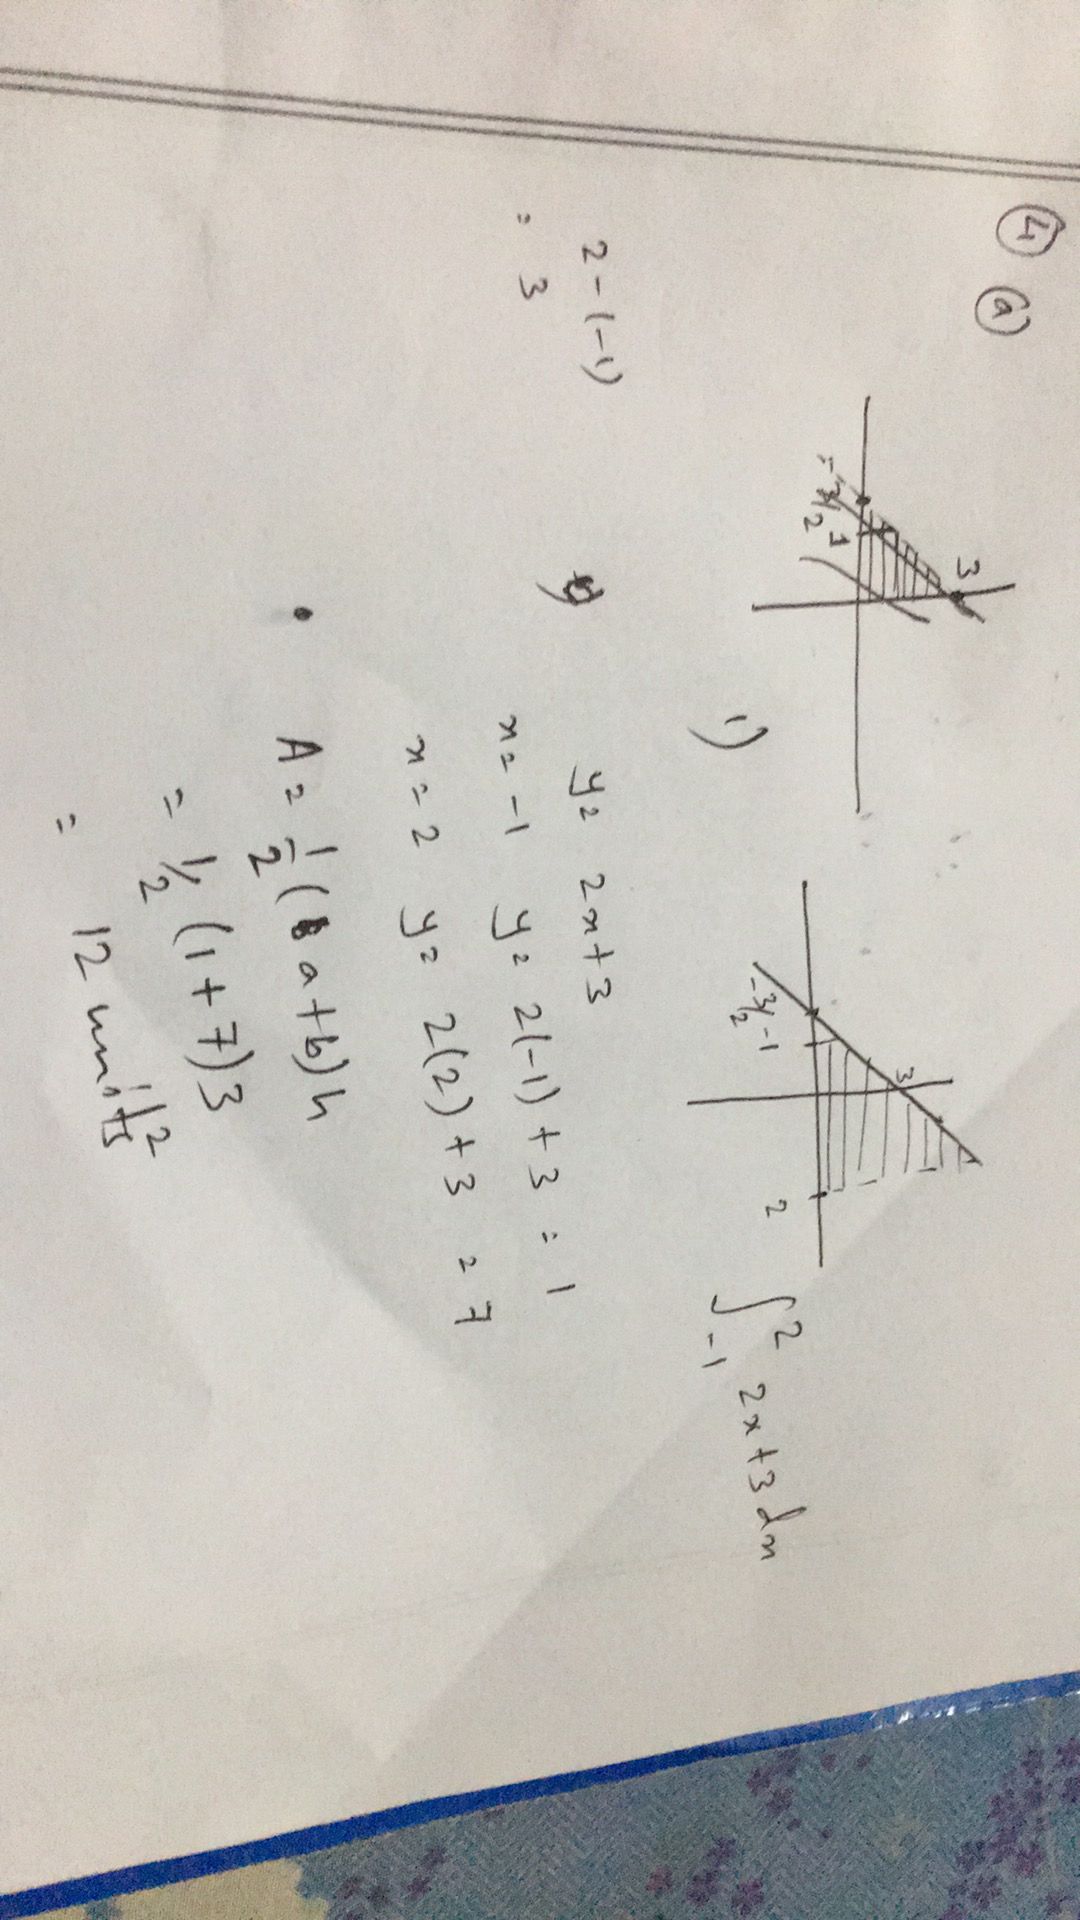 4 a
3
-3/2 -1
3
-3/2 -1
2
∫²₋₁ 2x+3 dx
1)
y = 2x+3
2-(-1)
= 3
x = -1 y = 2(-1) + 3 = 1
x = 2 y = 2(2) + 3 = 7
A = 1/2 (a+b)h
= 1/2 (1+7)3
= 12 units²